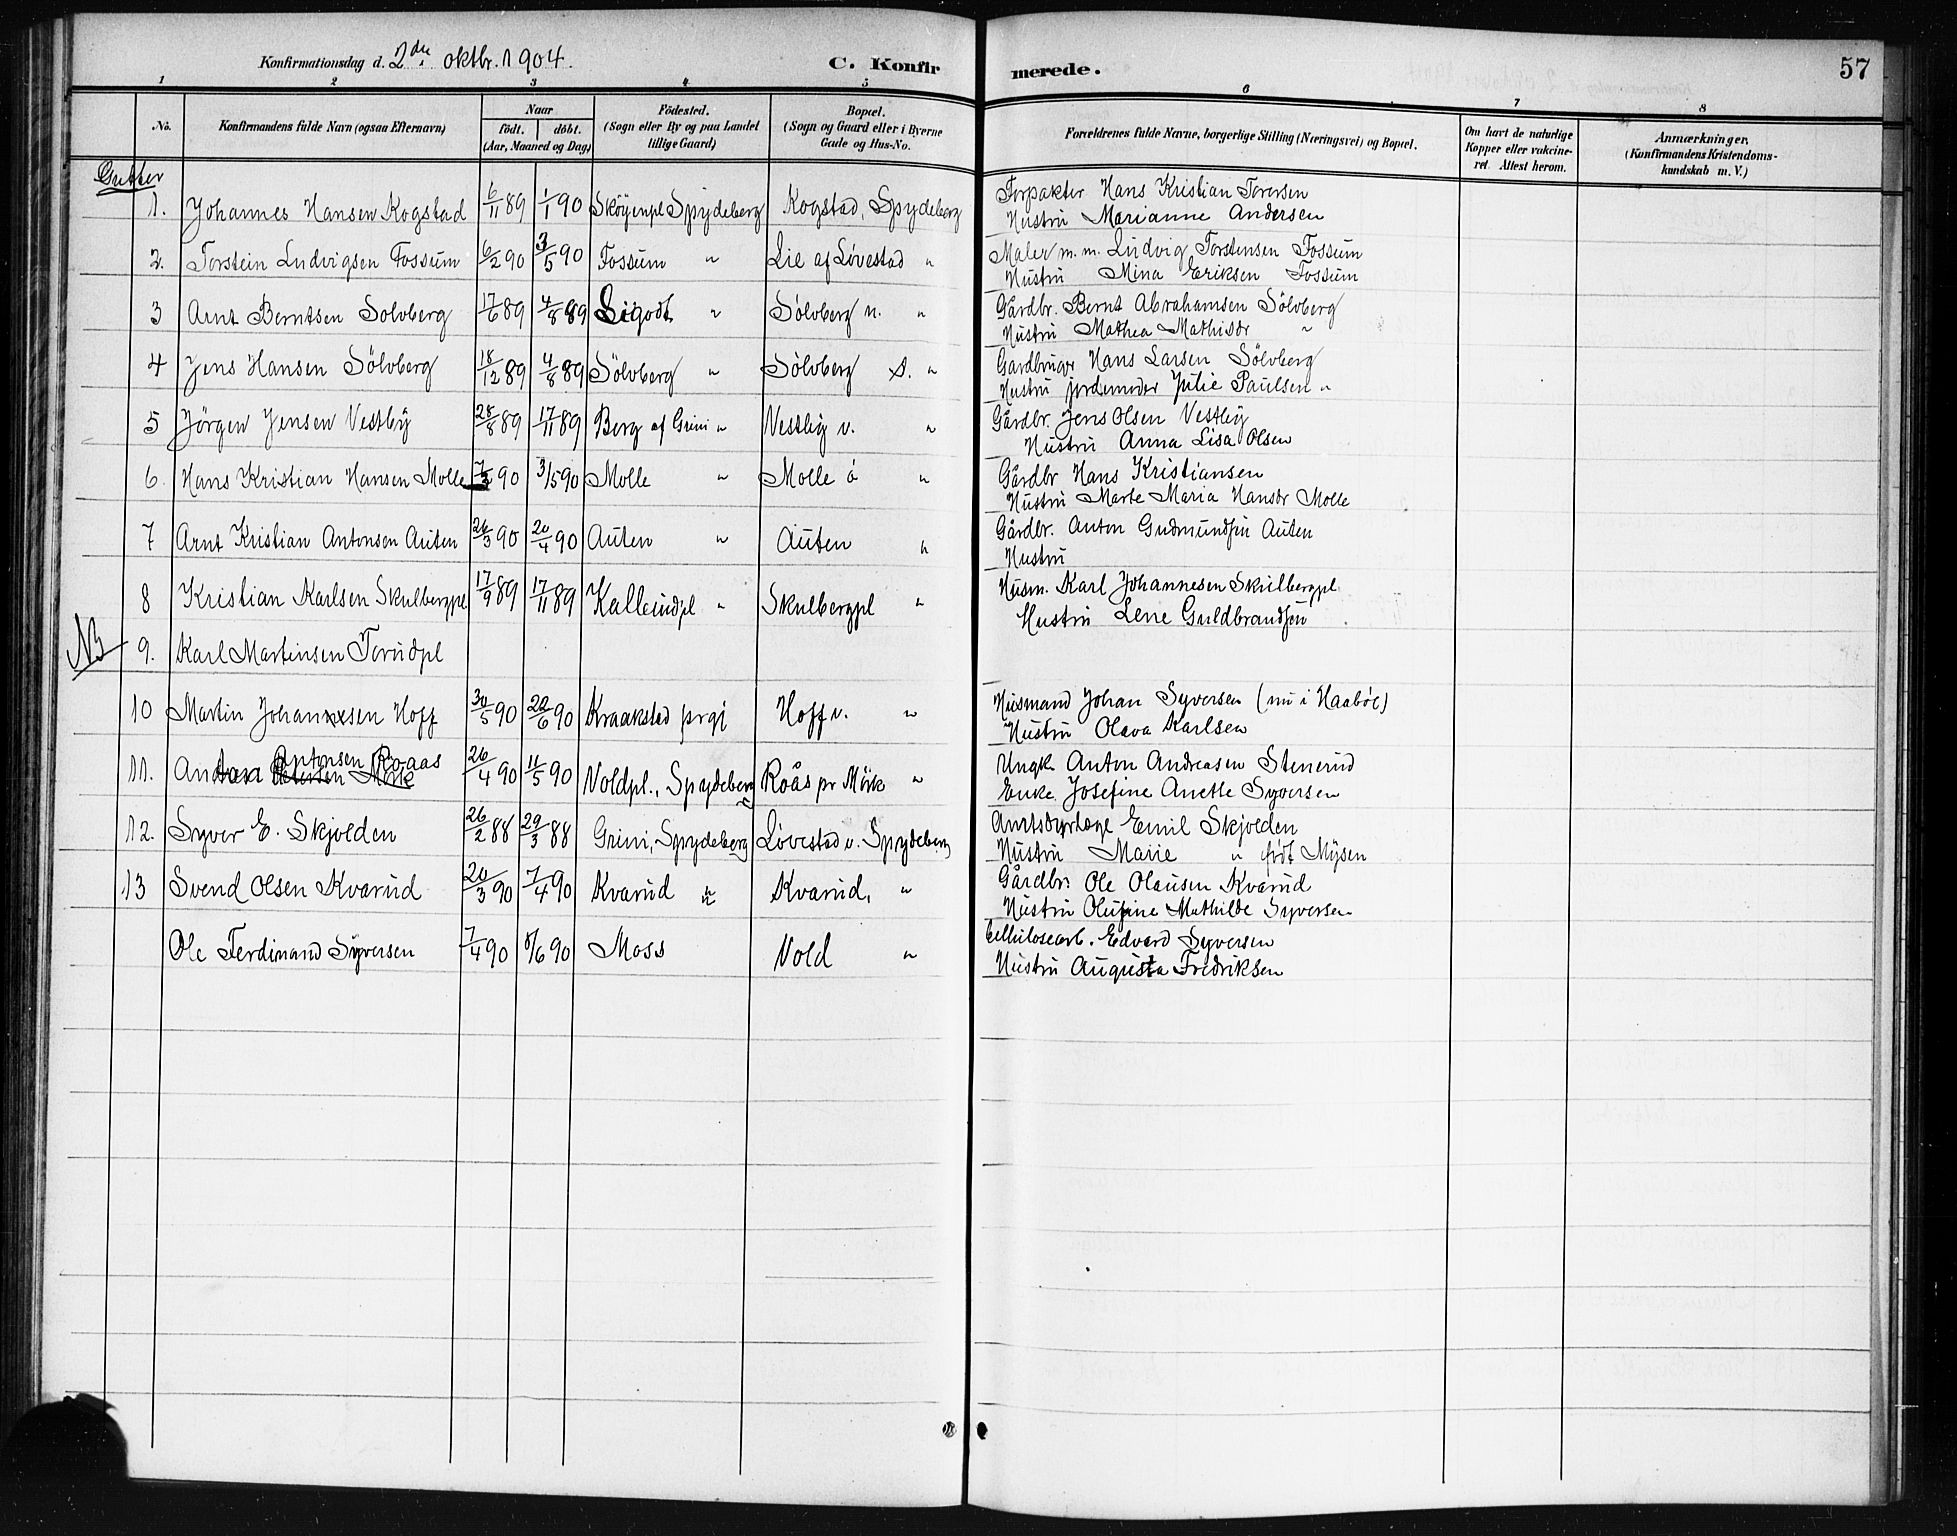 Konfirmationsdag d. 2den oktbr. 1904.
C. Konfir merede. 57
1 2 3 4 5 6 7 8
No. Konfirmandens fulde Navn (ogsaa Efternavn) Naar født. døbt. (Aar, Maaned og Dag) Fødested. (Sogn eller By og paa Landet tillige Gaard) Bopæl. (Sogn og Gaard eller i Byerne Gade og Hus-No. Forældrenes fulde Navne, borgerlige Stilling (Næringsvei) og Bopæl. Om havt de naturlige Kopper eller vakcineret. Attest herom. Anmærkninger. (Konfirmandens Kristendomskundskab m. V.)
Gutter
1. Johannes Hansen Kogstad 6/11 89 1/1 90 Skøyenpl Spydeberg Kogstad, Spydeberg Forpakter Hans Kristian Torersen
Hustru Marianne Andersen
2. Torstein Ludvigsen Fossum 6/2 90 3/5 90 Fossum " Lie af Løvestad " Maler m. m. Ludvig Torstensen Fossum
Hustru Mina Eriksen Fossum
3 Arnt Berntsen Solvberg 17/6 89 4/8 89 Ligodt " Sølvberg n. " Gårdbr. Bernt Abrahamsen Sölvberg
Hustru Mathea Mathisdr "
4 Jens Hansen Sölvberg 18/12 89 4/8 89 Sölvberg " Sölvberg s. " Gardbruger Hans Larsen Sölvberg
Hustru jordemoder Julie Paulsen "
5 Jörgen Jensen Vestby 28/8 89 17/11 89 Berg af Grini " Vestby v. " Gårdbr. Jens Olsen Vestby
Hustru Anna Lisa Olsen
6. Hans Kristian Hansen Molle 7/3 90 3/5 90 Molle " Molle ö " Gårdbr Hans Kristiansen
Hustru Marte Maria Hansdr Molle
7 Arnt Kristian Antonsen Auten 26/3 90 20/4 90 Auten " Auten " Gårdbr. Anton Gudmundsen Auten
Hustru
8 Kristian Karlsen Skulbergpl 17/9 89 17/11 89 Kallerudpl " Skulbergpl " Husm. Karl Johannesen Skulbergpl
Hustru Lene Guldbrandsen
NB 9. Karl Martinsen Torudpl
10 Martin Johannesen Hoff 30/5 90 22/6 90 Kraakstad prgj Hoff v. " Husmand Johan Syversen (nu i Haabøl)
Hustru Olava Karlsen
11. Anton Antonsen Roaas 26/4 90 11/5 90 Voldpl., Spydeberg Roås pr Mörk " Ungk. Anton Andreasen Stenerud
Enke Josefine Anette Syversen
12. Syver E. Skjolden 26/2 88 29/3 88 Grini, Spydeberg Løvestad v. Spydeberg Amtsdyrlæge Emil Skjolden
Hustru Marie " født Mysen
13 Svend Olsen Kvarud 20/3 90 7/4 90 Kvarud " Kvarud, " Gårdbr. Ole Olausen Kvarud
Hustru Olufine Mathilde Syversen
Ole Ferdinand Syversen 7/4 90 8/6 90 Moss Vold " Cellulosearb. Edvard Syversen
Hustru Augusta Fredriksen